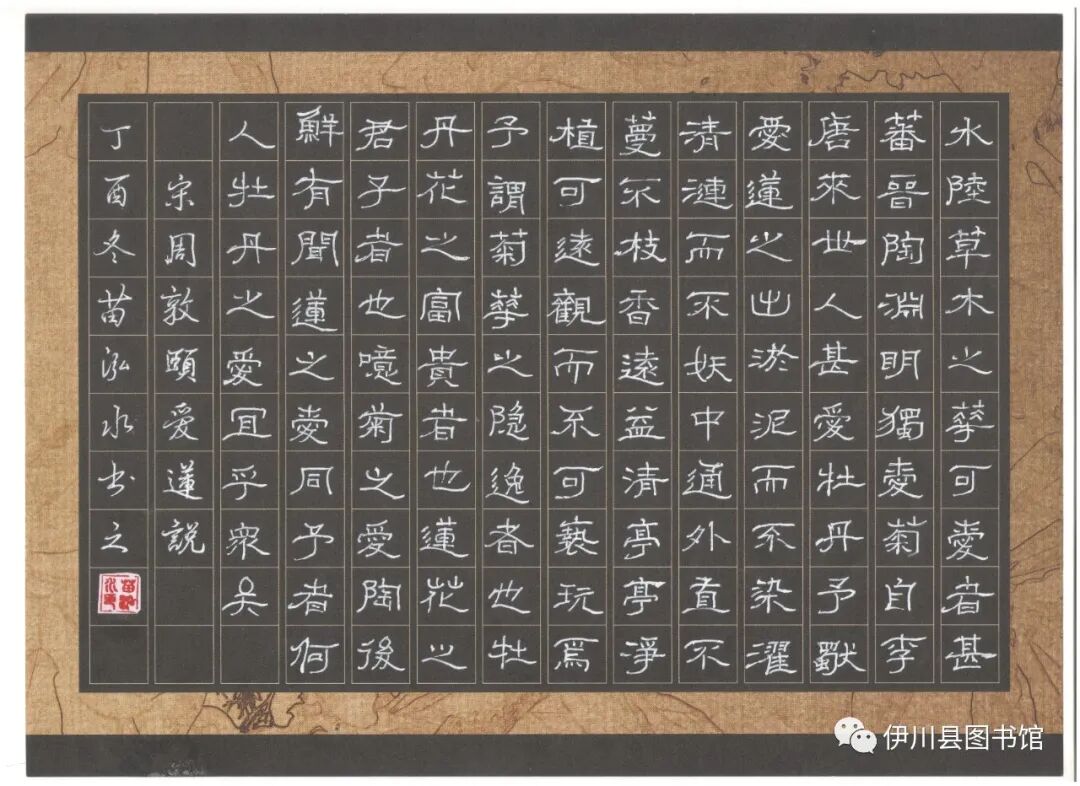 水陸草木之華可愛者甚
蕃晉陶淵明獨愛菊自李
唐來世人甚愛牡丹予獨
愛蓮之出淤泥而不染濯
清漣而不妖中通外直不
蔓不枝香遠益清亭亭淨
植可遠觀而不可褻玩焉
予謂菊華之隐逸者也牡
丹花之富貴者也蓮花之
君子者也噫菊之愛陶後
鮮有聞蓮之愛同予者何
人牡丹之愛宜乎眾矣
宋周敦頤爱蓮說
丁酉冬苗泓水书之
伊川县图书馆